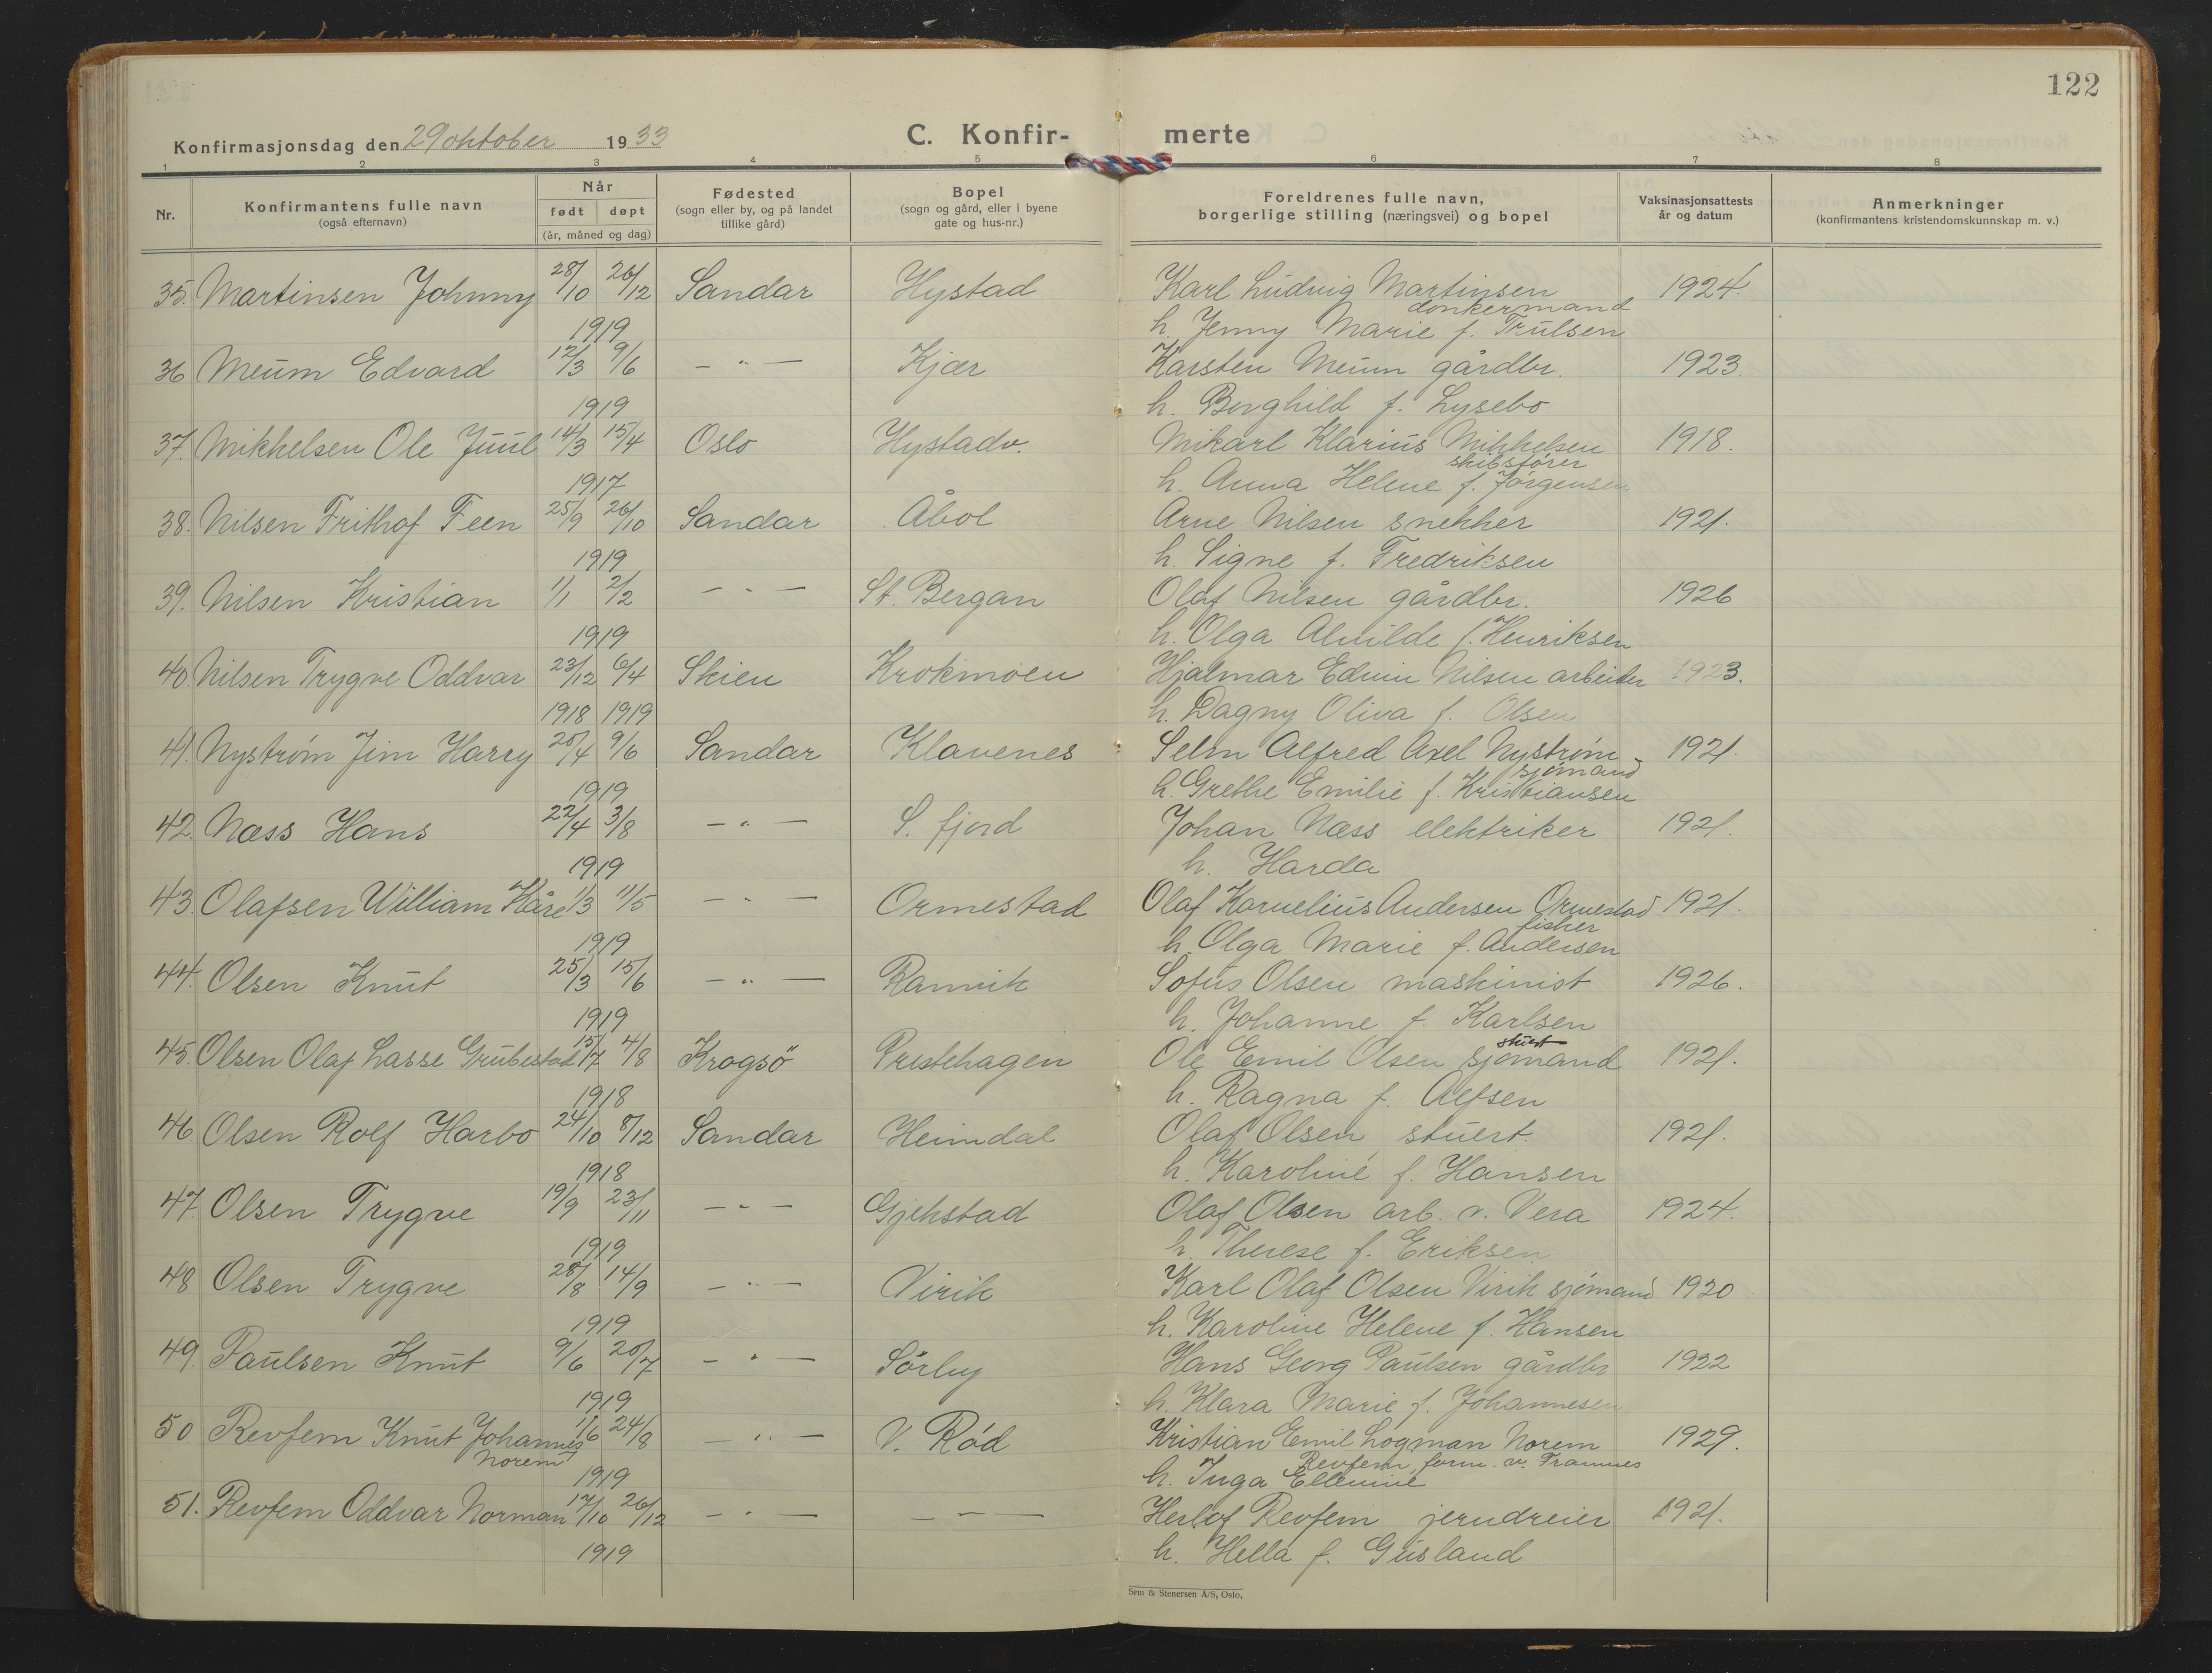 122
Konfirmasjonsdag den 29 oktober 1933
C. Konfir- merte
1 2 3 4 5 6 7 8
Nr.
Konfirmantens fulle navn
(også efternavn)
Når
født døpt
(år, måned og dag)
Fødested
(sogn eller by, og på landet
tillike gård)
Bopel
(sogn og gård, eller i byene
gate og hus-nr.)
Foreldrenes fulle navn,
borgerlige stilling (næringsvei) og bopel
Vaksinasjonsattests
år og datum
Anmerkninger
(konfirmantens kristendomskunnskap m. v.)
35. Martinsen Johnny 28/10 26/12 Sandar Hystad Karl Ludvig Martinsen 1924.
donkermand
1919 h. Jenny Marie f. Trulsen
36 Meum Edvard 12/3 9/6 — " — Kjær Karsten Meum gårdbr. 1923.
1919 h. Borghild f. Lysebo
37. Mikkelsen Ole Juul 14/3 15/4 Oslo Hystadv. Mikarl Klarius Mikkelsen 1918.
skibsfører
1917 h. Anna Helene f. Jørgensen
38. Nilsen Frithof Feen 25/9 26/10 Sandar Åbol Arne Nilsen snekker 1921.
1919 h. Signe f. Fredriksen
39. Nilsen Kristian 1/1 2/2 — " — St. Bergan Olaf Nilsen gårdbr. 1926
1919 h. Olga Alvilde f. Henriksen
40. Nilsen Trygve Oddvar 23/12 6/4 Skien Krokmoen Hjalmar Edvin Nilsen arbeider 1923.
1918 1919 h. Dagny Oliva f. Olsen
41. Nystrøm Jim Harry 20/4 9/6 Sandar Klavenes Selm Alfred Axel Nystrøm 1921.
sjømand
1919 h. Grethe Emilie f. Kristiansen
42. Næss Hans 22/4 3/8 — " — S. fjord Johan Næss elektriker 1921.
1919 h. Harda
43. Olafsen William Kåre 1/3 11/5 — " — Ormestad Olaf Kornelius Andersen Ormestad 1921.
fisker
1919 h. Olga Marie f. Andersen
44. Olsen Knut 25/3 15/6 — " — Ranvik Sofus Olsen maskinist 1926.
1919 h. Johanne f. Karlsen
stuert
45. Olsen Olaf Lasse Grubestad 15/7 4/8 Krogsö Prestehagen Ole Emil Olsen sjømand 1921.
1918 h. Ragna f. Alfsen
46 Olsen Rolf Harbo 24/10 8/12 Sandar Heimdal Olaf Olsen stuert. 1921.
1918 h. Karoline f. Hansen
47. Olsen Trygve 19/9 23/11 — " — Gjekstad Olaf Olsen arb. v. Vera 1924.
1919 h. Therese f. Eriksen
48 Olsen Trygve 28/8 14/9 — " — Virik Karl Olaf Olsen Virik sjømand 1920
1919 h. Karoline Helene f. Hansen
49. Paulsen Knut 9/6 20/7 — " — Sörby Hans Georg Paulsen gårdbr 1922
1919 h. Klara Marie f. Johannesen
50 Revfem Knut Johannes 1/6 24/8 — " — V. Rød Kristian Emil Logman Norem 1929.
Norem Revfem, form. v. Framnes
1919 h. Inga Ellemine
51. Revfem Oddvar Norman 17/10 26/12 — " — — " — Herlof Revfem jerndreier 1921.
1919 h. Hella f. Gusland
Sem & Stenersen A/S, Oslo.